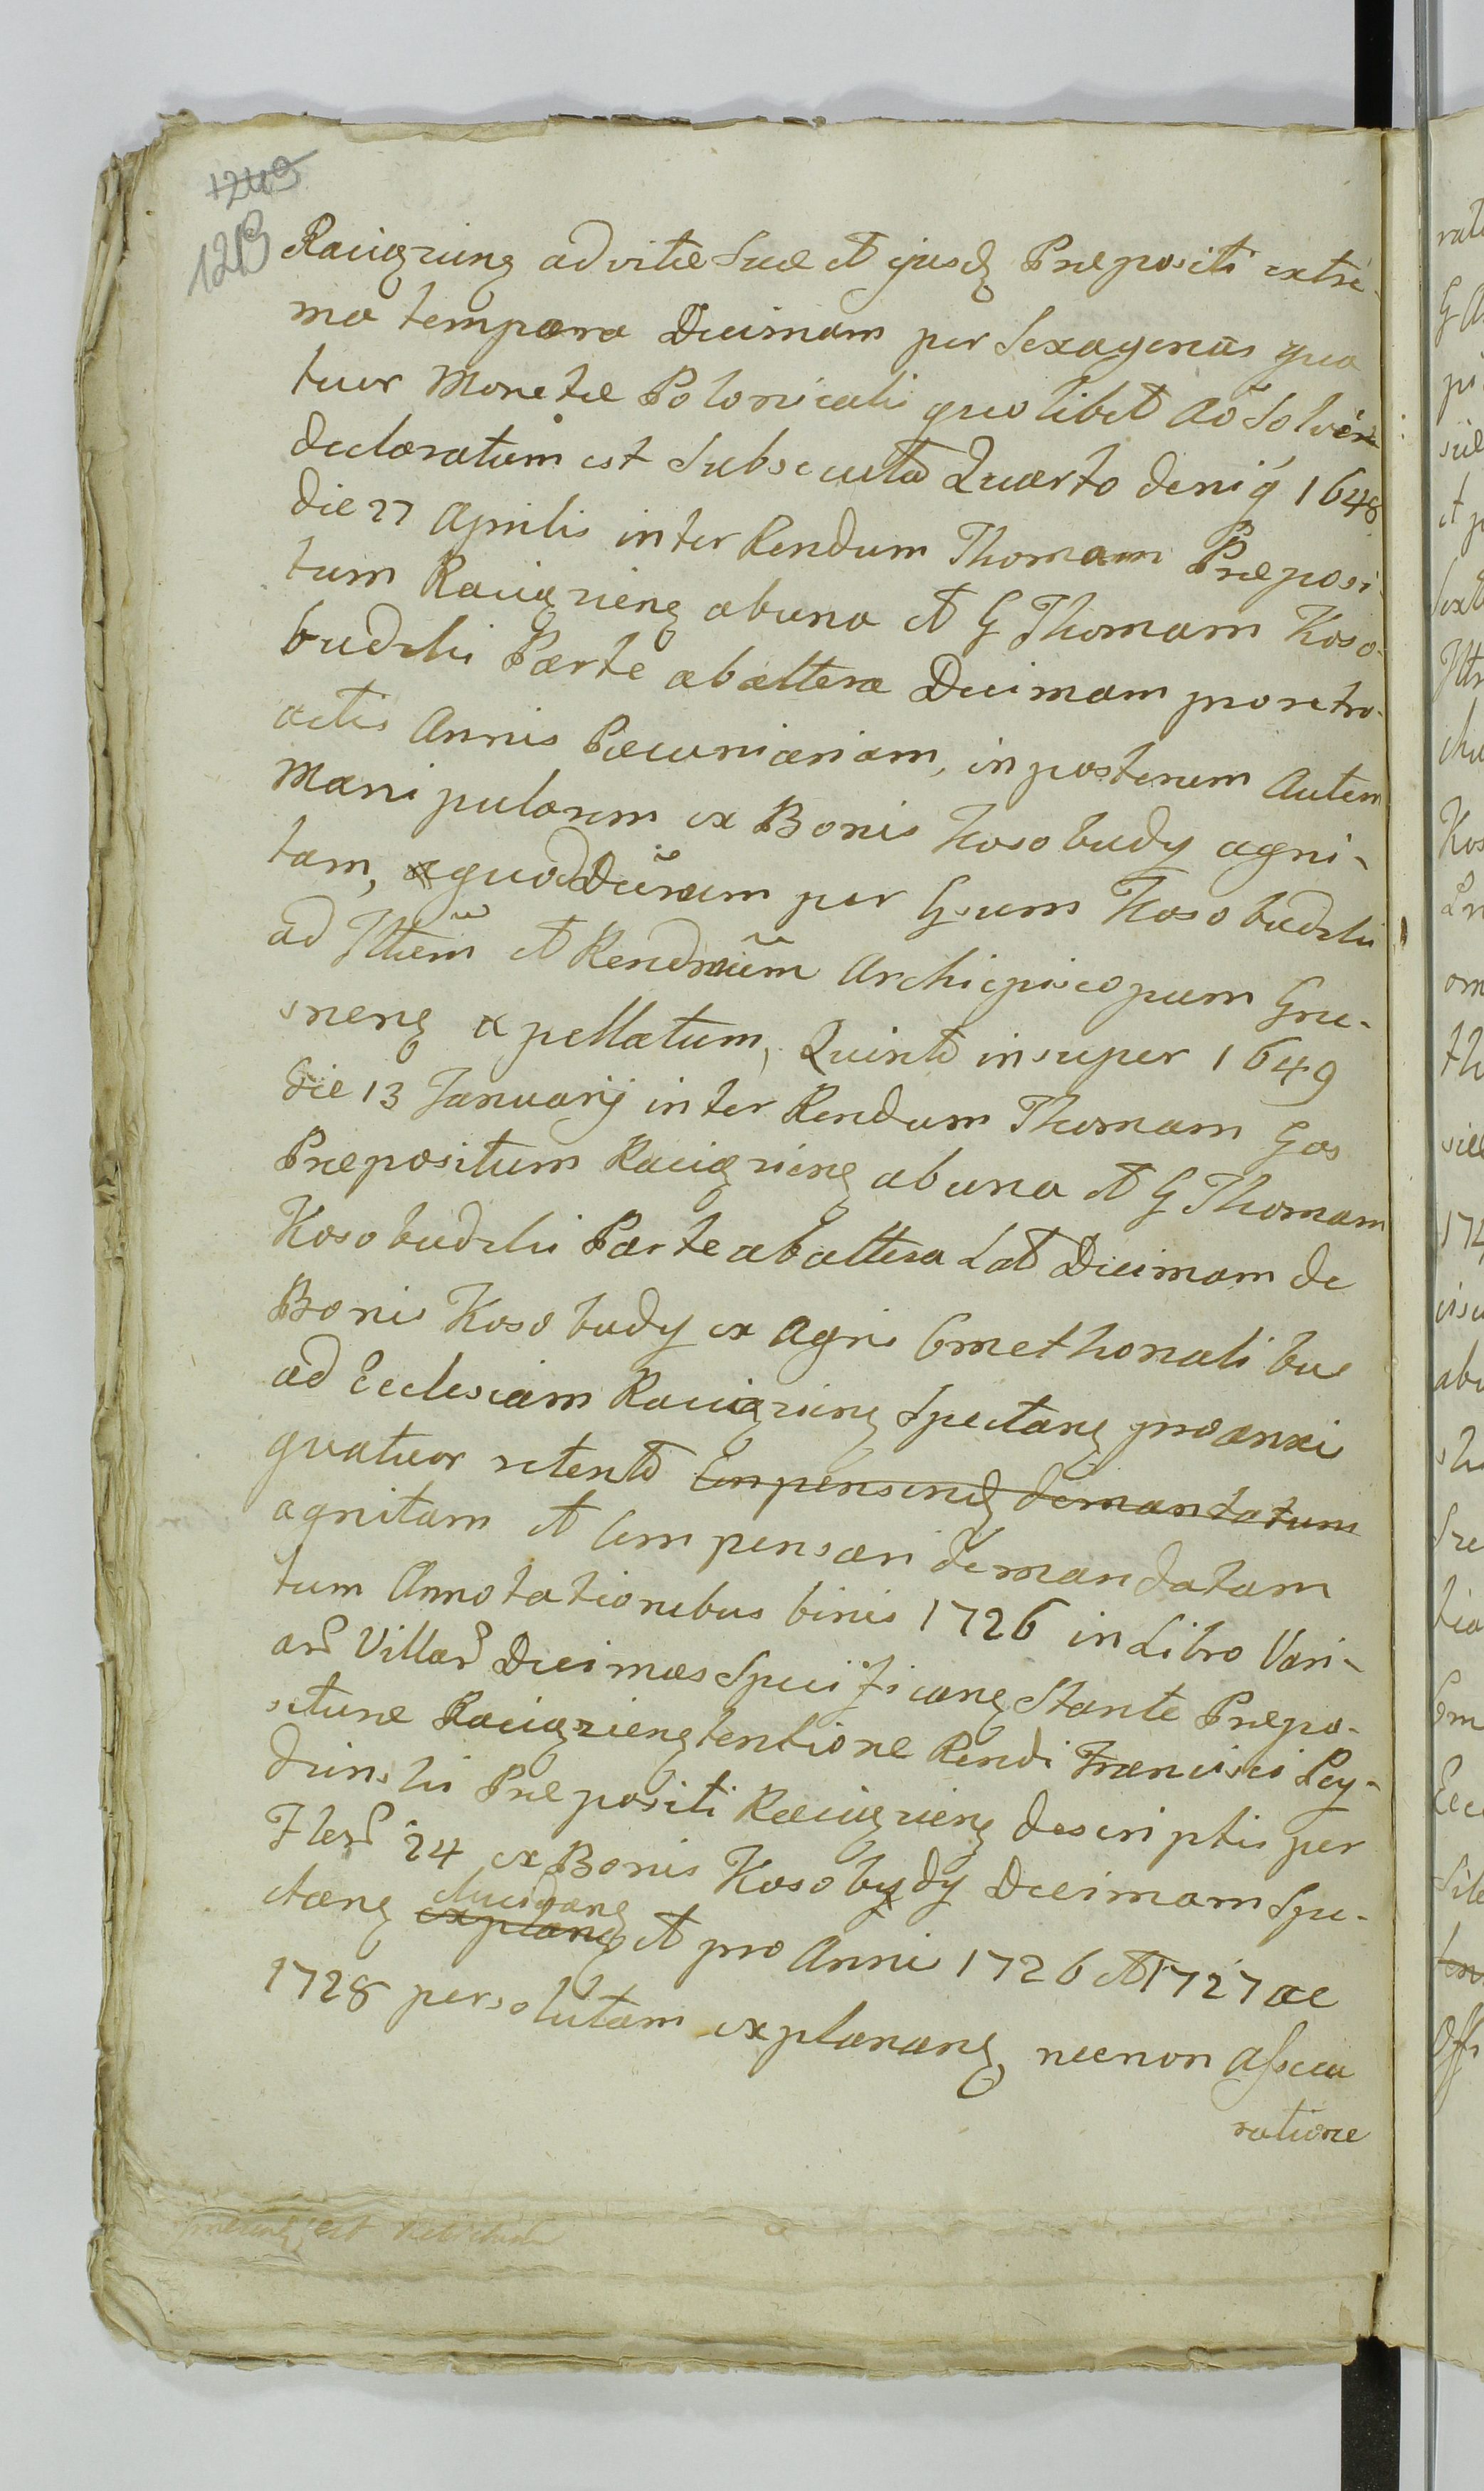 1240
12B
Raciązieng ad vitæ suæ et ejusdg Præpositi extre-
ma tempora Decimam per Sexagenas qua
tuor Monetæ Polonicali quolibet Ao Solven
declaratum est subsecuta Quarto deniq 1648
die 27 Aprilis inter Rendum Thomam Præposi-
tum Raciązieng ab una et G Thomam Koso-
budzki Parte ab altera Decimam pro retro-
actis Annis Pæcuniariam, in posterum Autem
Manipularem ex Bonis Kosobudy agni-
tam, a quo Decreum per Gsum Kosobudzki
ad Illem et Rendmum Archiepiscopum Gne-
sneng apellatum, Quinto insuper 1649
die 13 Januarij inter Rendum Thomam Gos
Præpositum Raciązieng ab una et G Thomam
Kosobudzki Parte ab altera Lat Decimam de
Bonis Kosobudy ex Agris Cmethonalibus
ad Ecclesiam Raciązieng Spectang pro annis
quatuor retento Compensend demandatum
agnitam et Compensari demandatam
tum Annotationibus binis 1726 in Libro Vari-
ar Villar Decimas Specificang Stante Præpo-
situræ Raciązieng tentione Rendi Francisci Pey-
drinski Præpositi Raciązieng descriptis per
Flor 24 ex Bonis Kosobudy Decimam Spe-
elucidang
ctang explang et pro Annis 1726 et 1727 ac
1728 persolutam explanang necnon Assecu
ratione